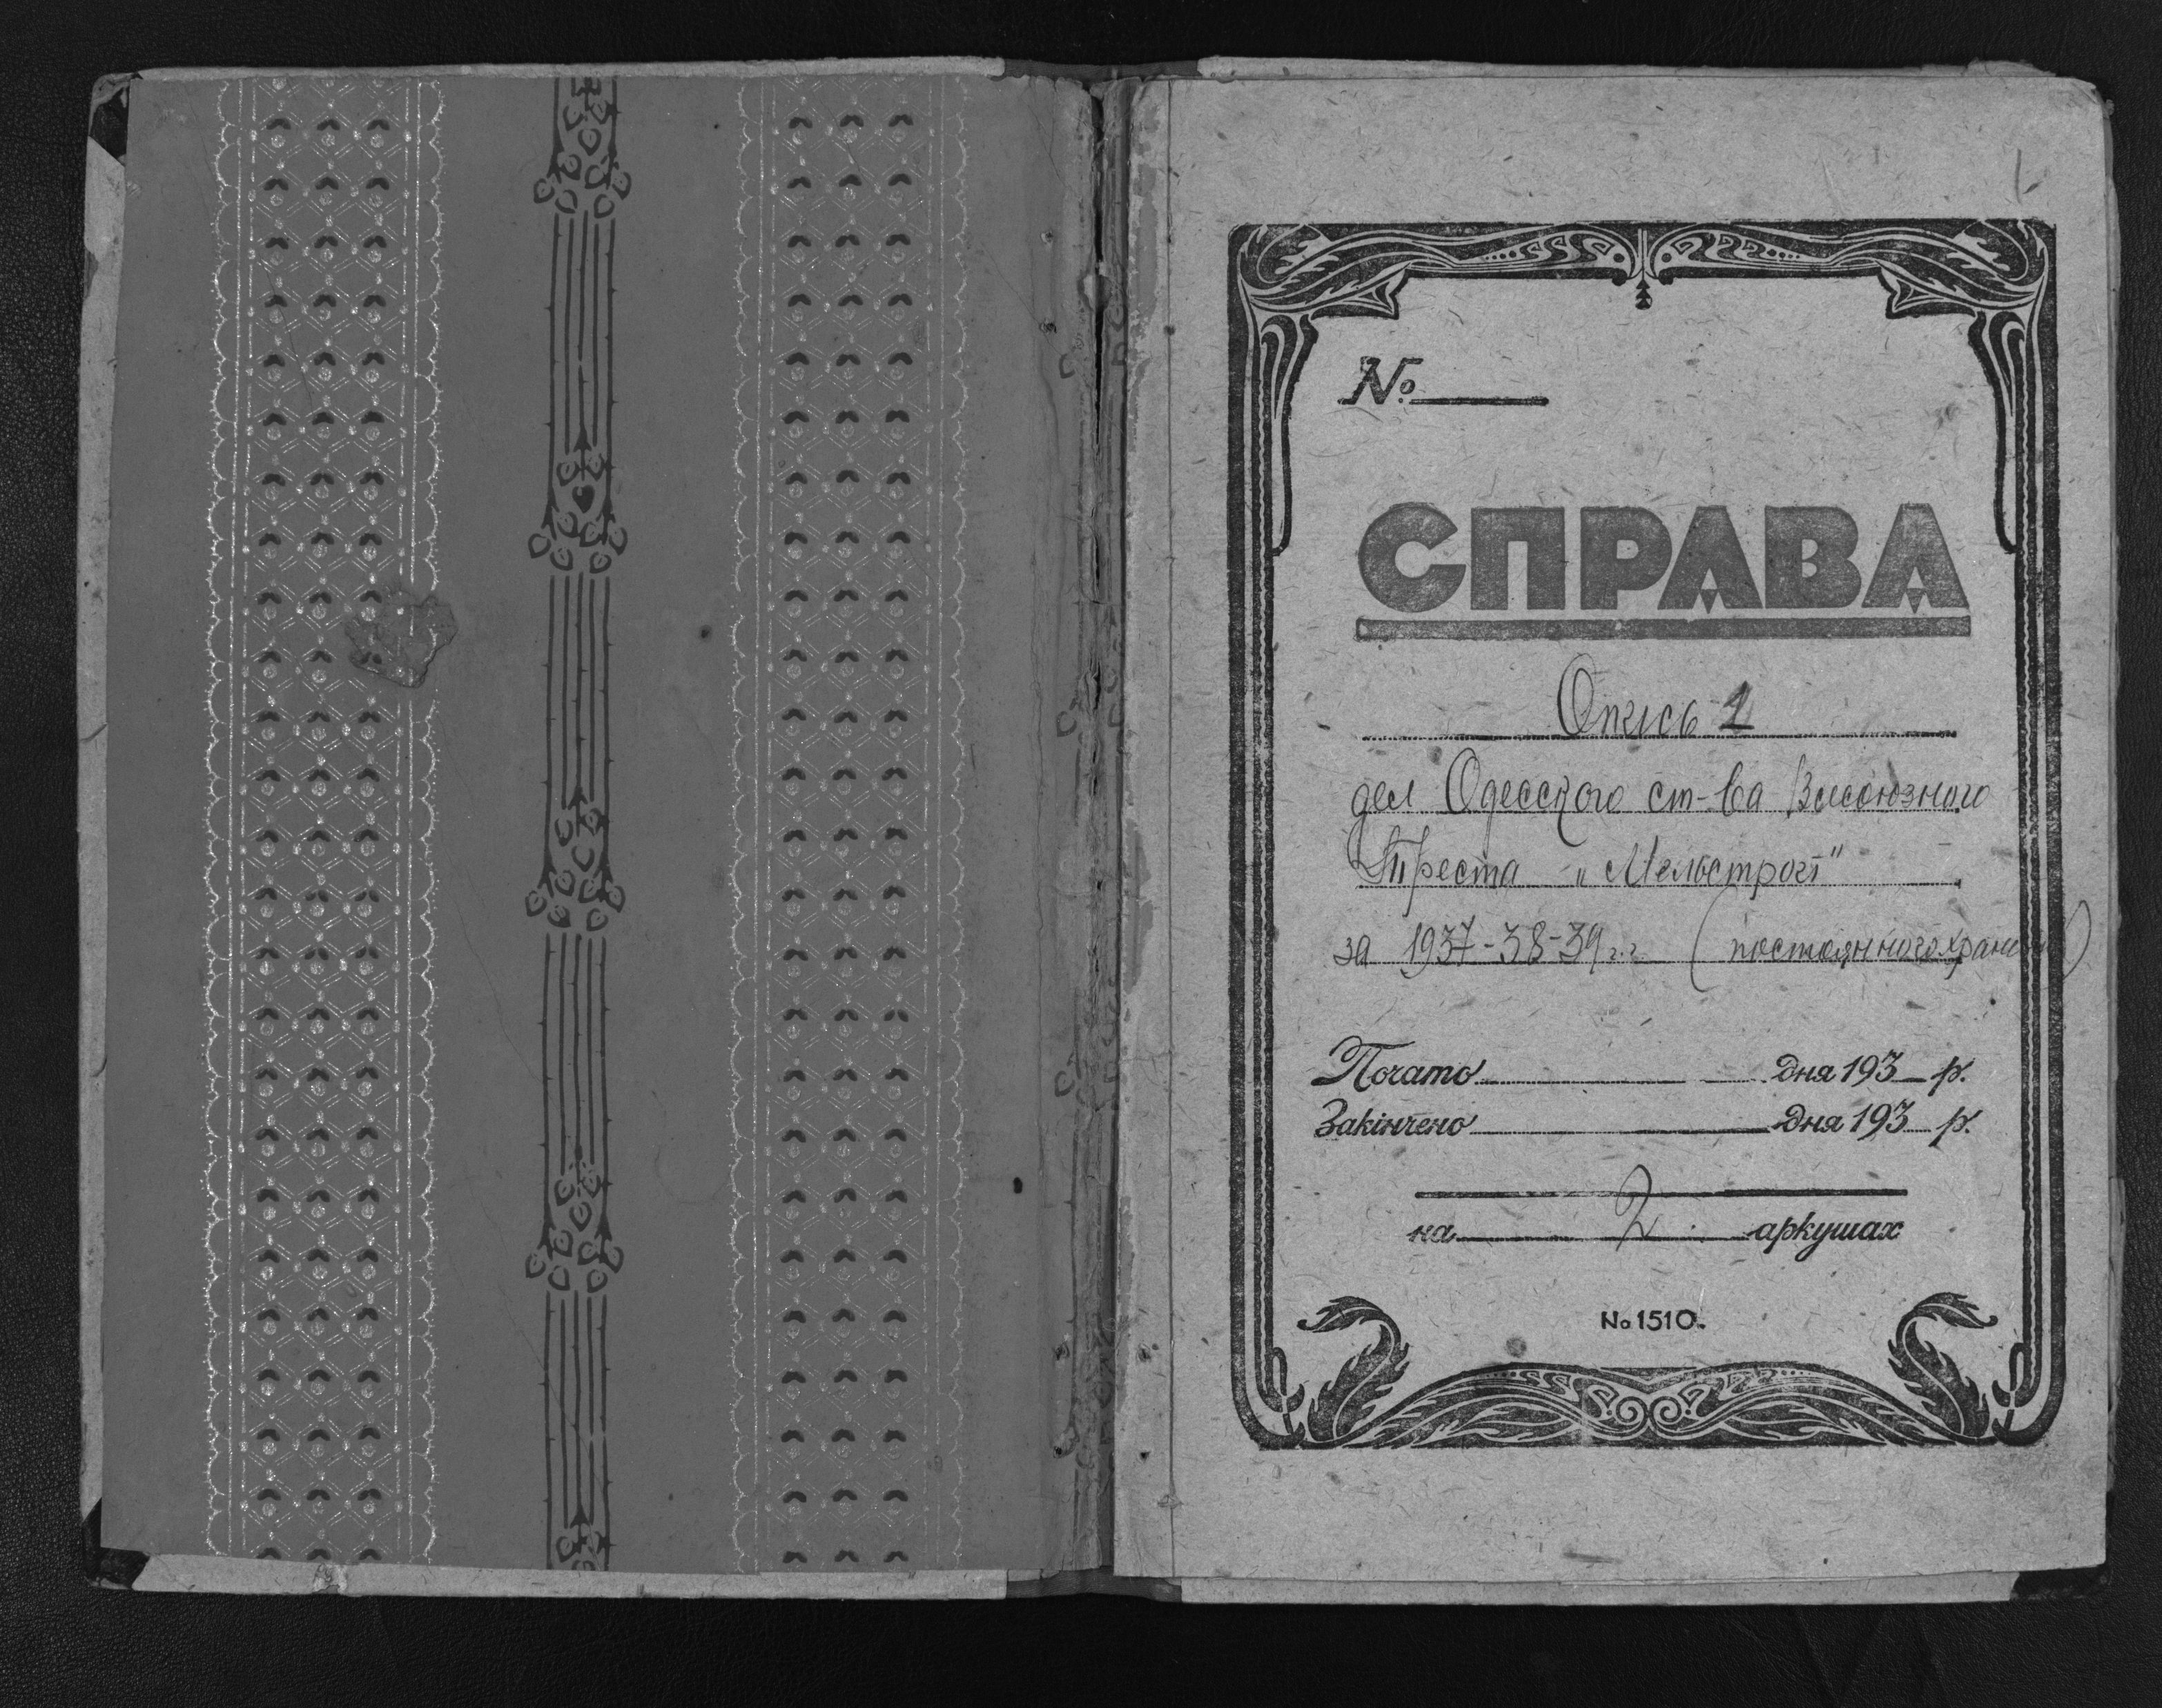 №
СПРАВА
Опись 1
дел Одесского ст-ва Всесоюзного
Треста „Мельстрой"
за 1937-38-39 г.г. (постоянного хранения)
Почато дня 193 р.
Закінчено дня 193 р.
на 2 аркушах
№ 1510.